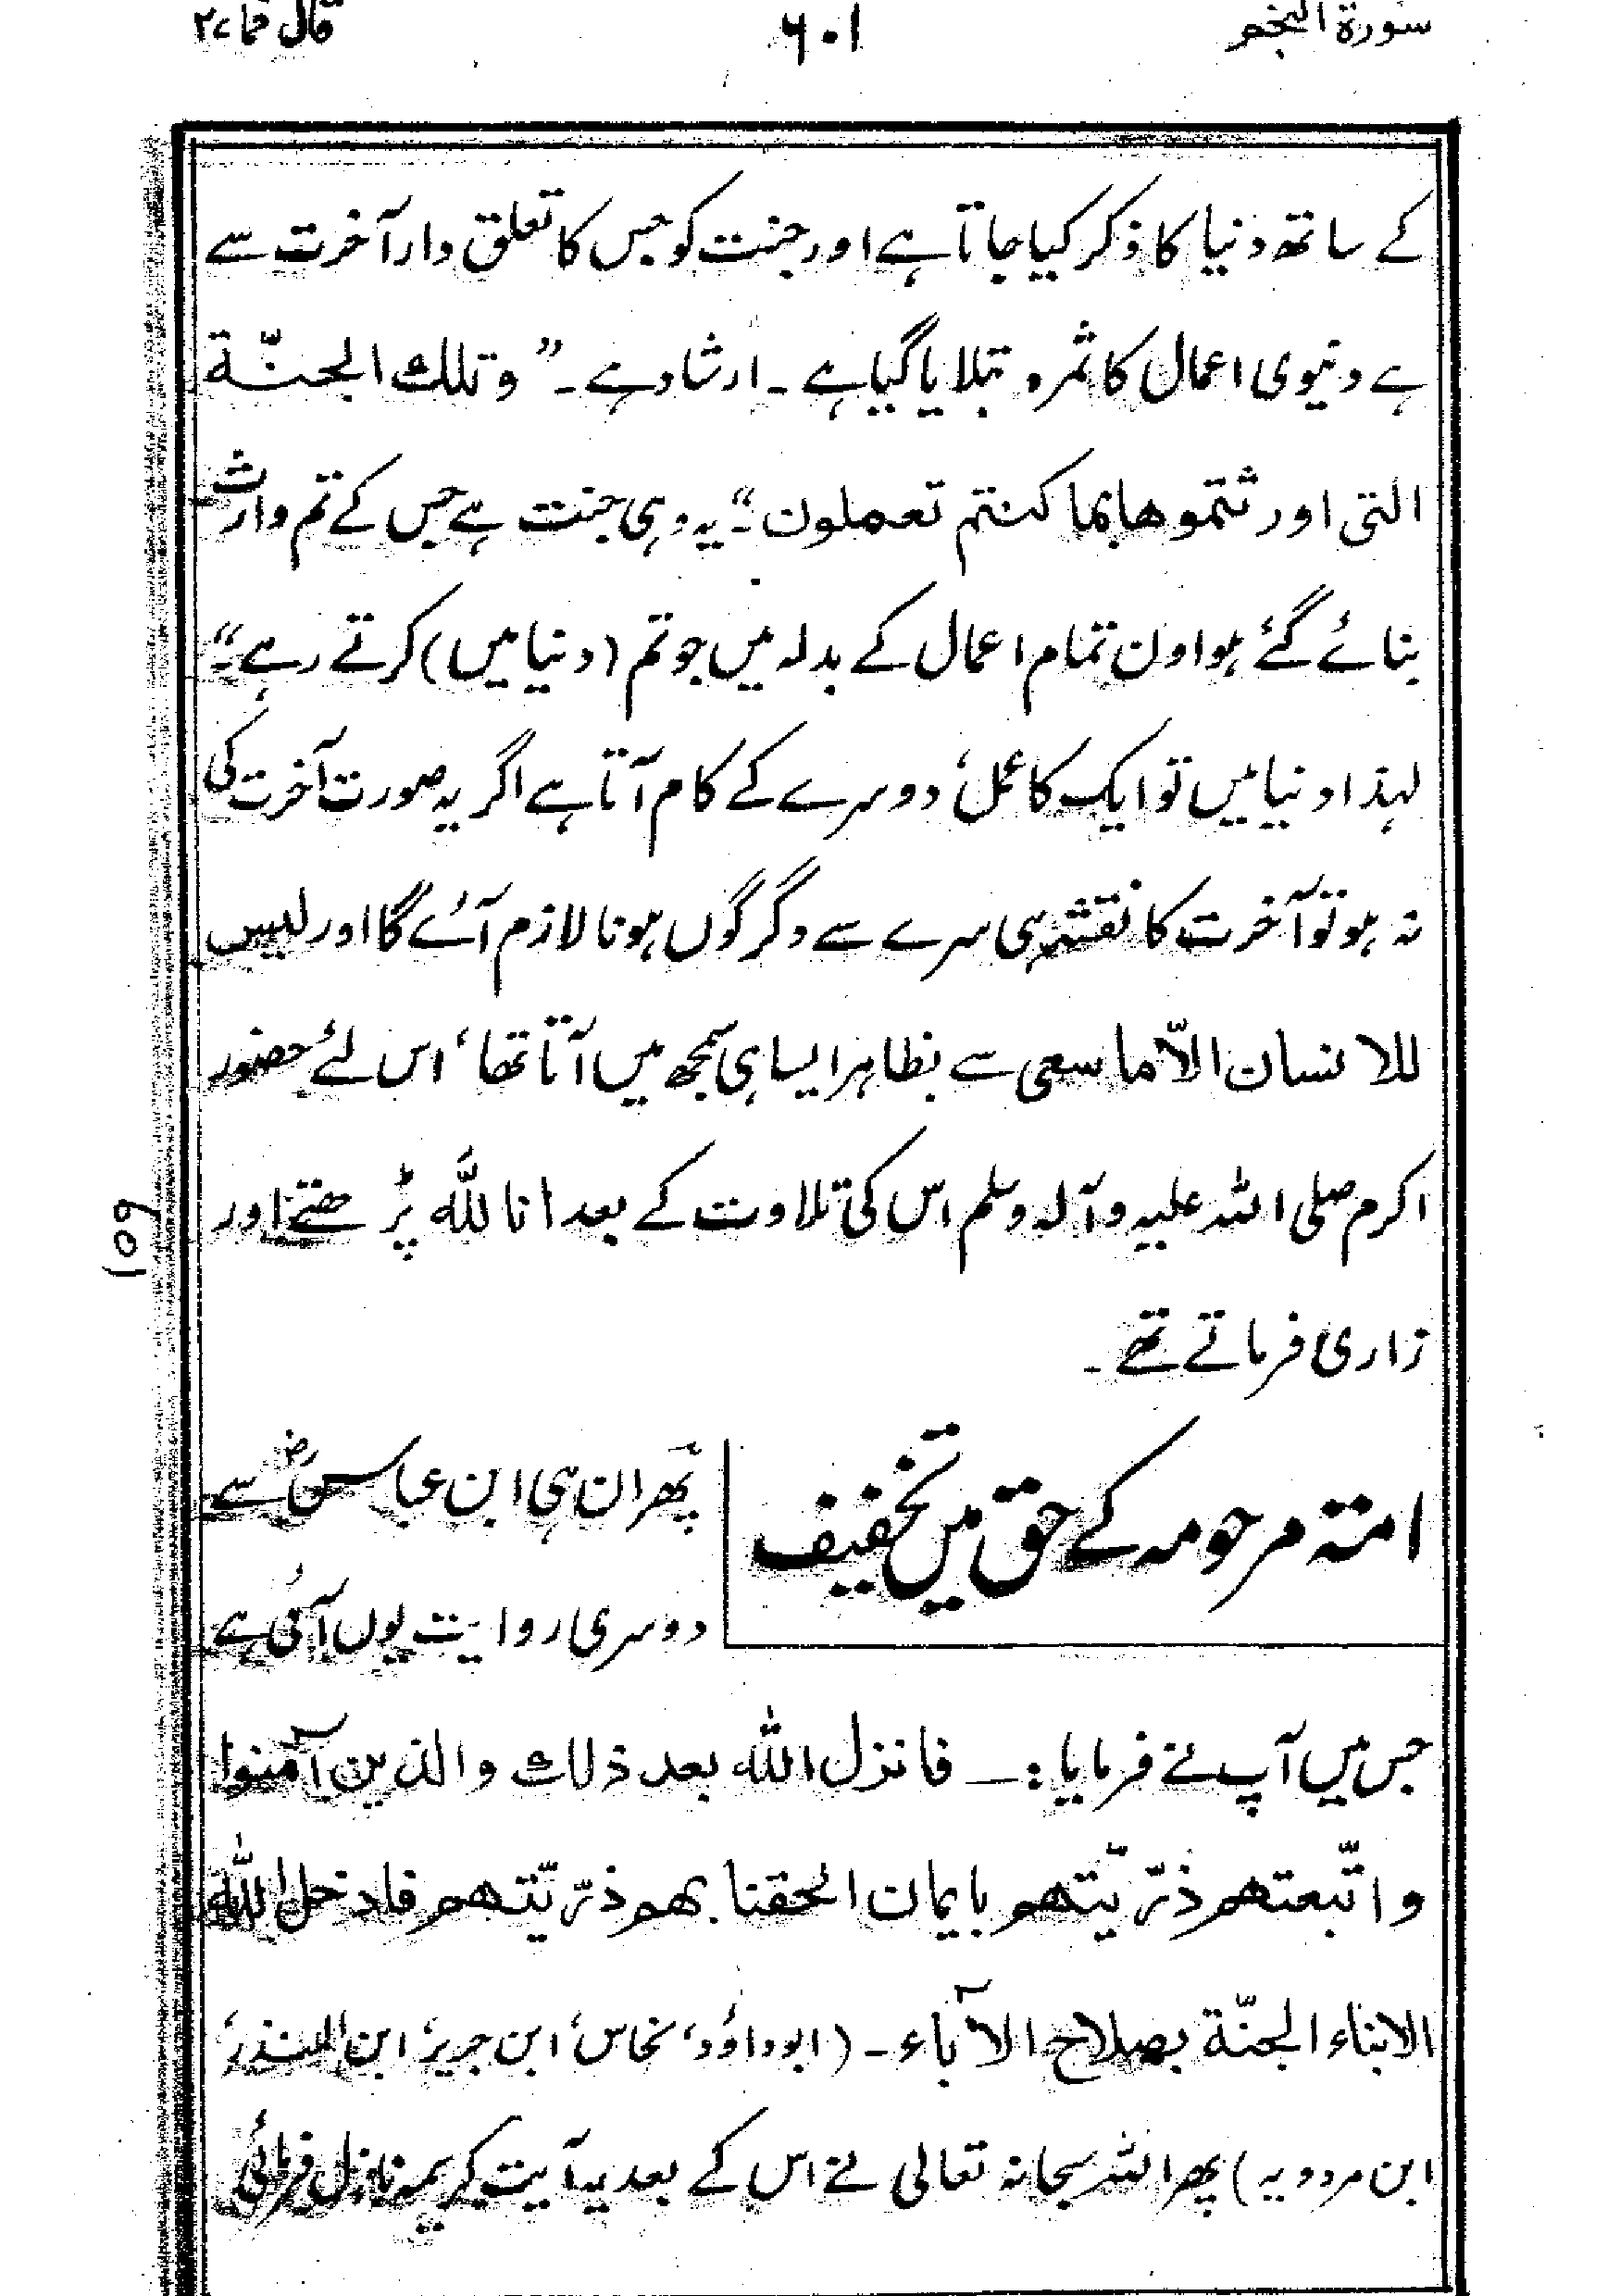 سورة النجم ٦٠١ قال فما ٢٧
کے ساتھ دنیا کا ذکر کیا جاتا ہے اور جنت کو جس کا تعلق دار آخرت سے
ہے دنیوی اعمال کا ثمرہ بتلایا گیا ہے ۔ ارشاد ہے ۔ ”وتلك الجنّة
التی اورثتموها بما کنتم تعملون“۔ یہ وہی جنت ہے جس کے تم وارث
بنائے گئے ہو اون تمام اعمال کے بدلہ میں جو تم (دنیا میں) کرتے رہے“۔
لہذا دنیا میں تو ایک کا عمل، دوسرے کے کام آتا ہے اگر یہ صورت آخرت کی
نہ ہو تو آخرت کا نقشہ ہی سرے سے دگرگوں ہونا لازم آئے گا اور لیس
للانسان الاّ ما سعی سے بظاہر ایسا ہی سمجھ میں آتا تھا، اس لئے حضور
اکرم صلی اللہ علیہ وآلہ وسلم اس کی تلاوت کے بعد انا للّٰه پڑھتے اور
601
زاری فرماتے تھے ۔
امتہ مرحومہ کے حق میں تخفیف
پھر ان ہی ابن عباسؓ سے
دوسری روایت یوں آئی ہے
جس میں آپ نے فرمایا :— فانزل اللّٰه بعد ذلك والذین آمنوا
واتّبعتهم ذرّیّتهم بایمان الحقنا بهم ذرّیّتهم فادخل اللّٰه
الابناء الجنّة بصلاح الآباء ۔ (ابوداؤد، نحاس، ابن جریر، ابن المنذر،
ابن مردویہ) پھر اللہ سبحانہ تعالی نے اس کے بعد یہ آیت کریمہ نازل فرمائی